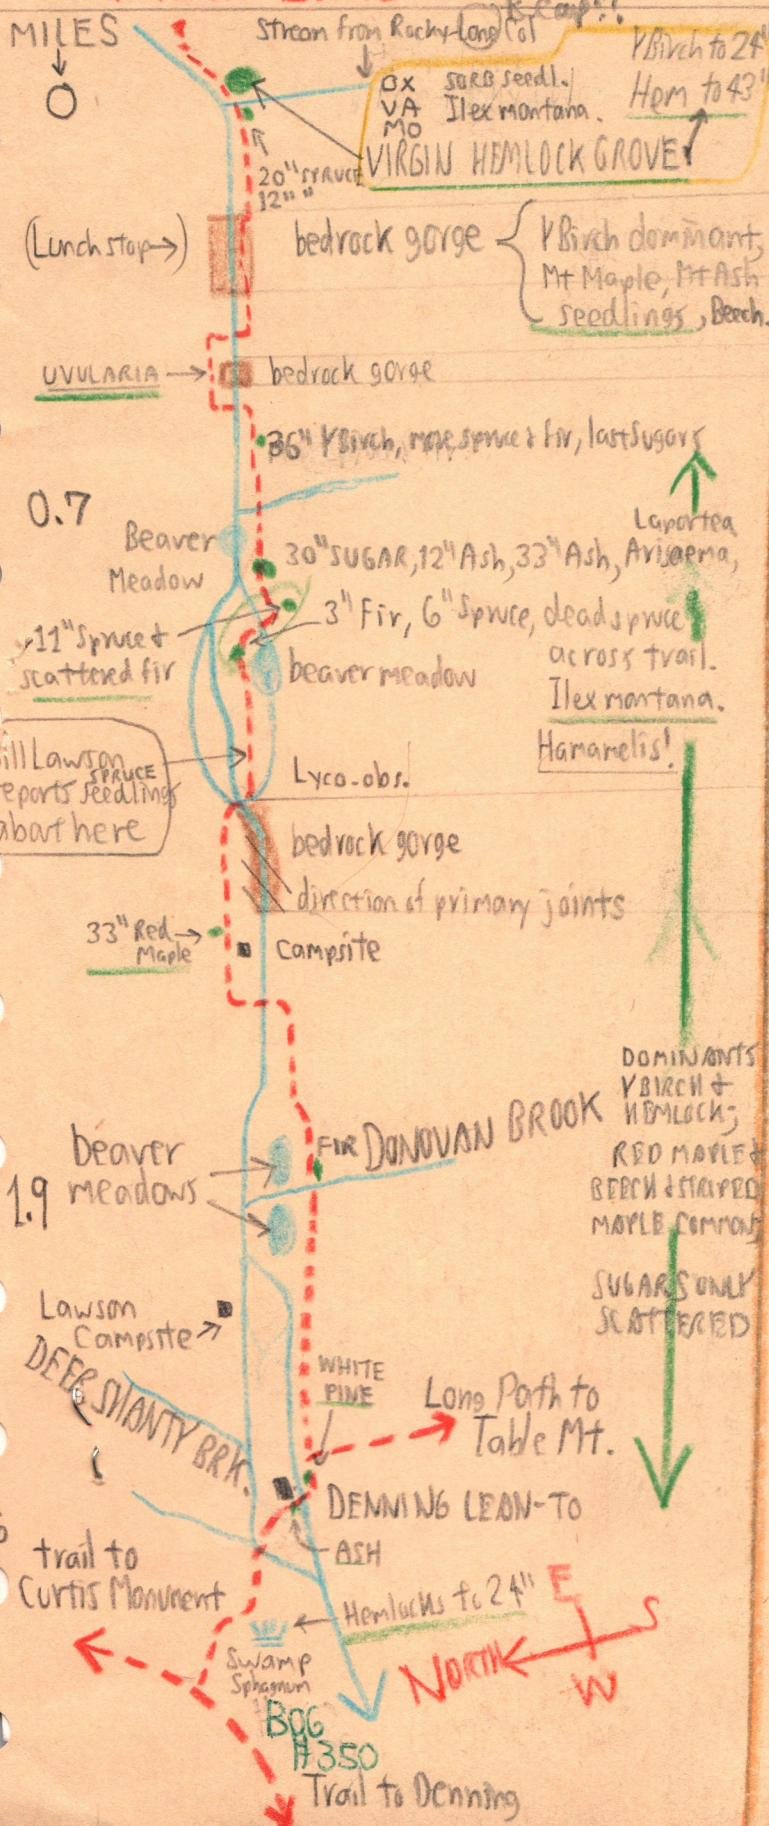 MILES
0
Stream from Rocky-Long Col
OX
VA
MO
SORB seedl.
Ilex montana.
YBirch to 24"
Hem to 43"
VIRGIN HEMLOCK GROVE
20" SPRUCE
12" "
(Lunch stop→)
bedrock gorge
YBirch dominant,
Mt Maple, Mt Ash
seedlings, Beech.
UVULARIA →
bedrock gorge
36" YBirch, more spruce & fir, last Sugars
0.7
Beaver
Meadow
30" SUGAR, 12" Ash, 33" Ash,
Laportea
Arisaema,
11" Spruce &
scattered fir
3" Fir, 6" Spruce, dead spruce
across trail.
Ilex montana.
Hamamelis!
beaver meadow
ill Lawson
reports SPRUCE seedlings
about here
Lyco-obs.
bedrock gorge
direction of primary joints
33" Red →
Maple
Campsite
DOMINANTS
YBIRCH &
HEMLOCK;
RED MAPLE &
BEECH & STRIPED
MAPLE COMMON;
SUGARS ONLY
SCATTERED
FIR
DONOVAN BROOK
beaver
meadows
1.9
Lawson
Campsite
DEER SHANTY BRK.
WHITE
PINE
Long Path to
Table Mt.
DENNING LEAN-TO
ASH
trail to
Curtis Monument
Hemlocks to 24"
Swamp
Sphagnum
BOG
#350
E
S
NORTH
W
Trail to Denning